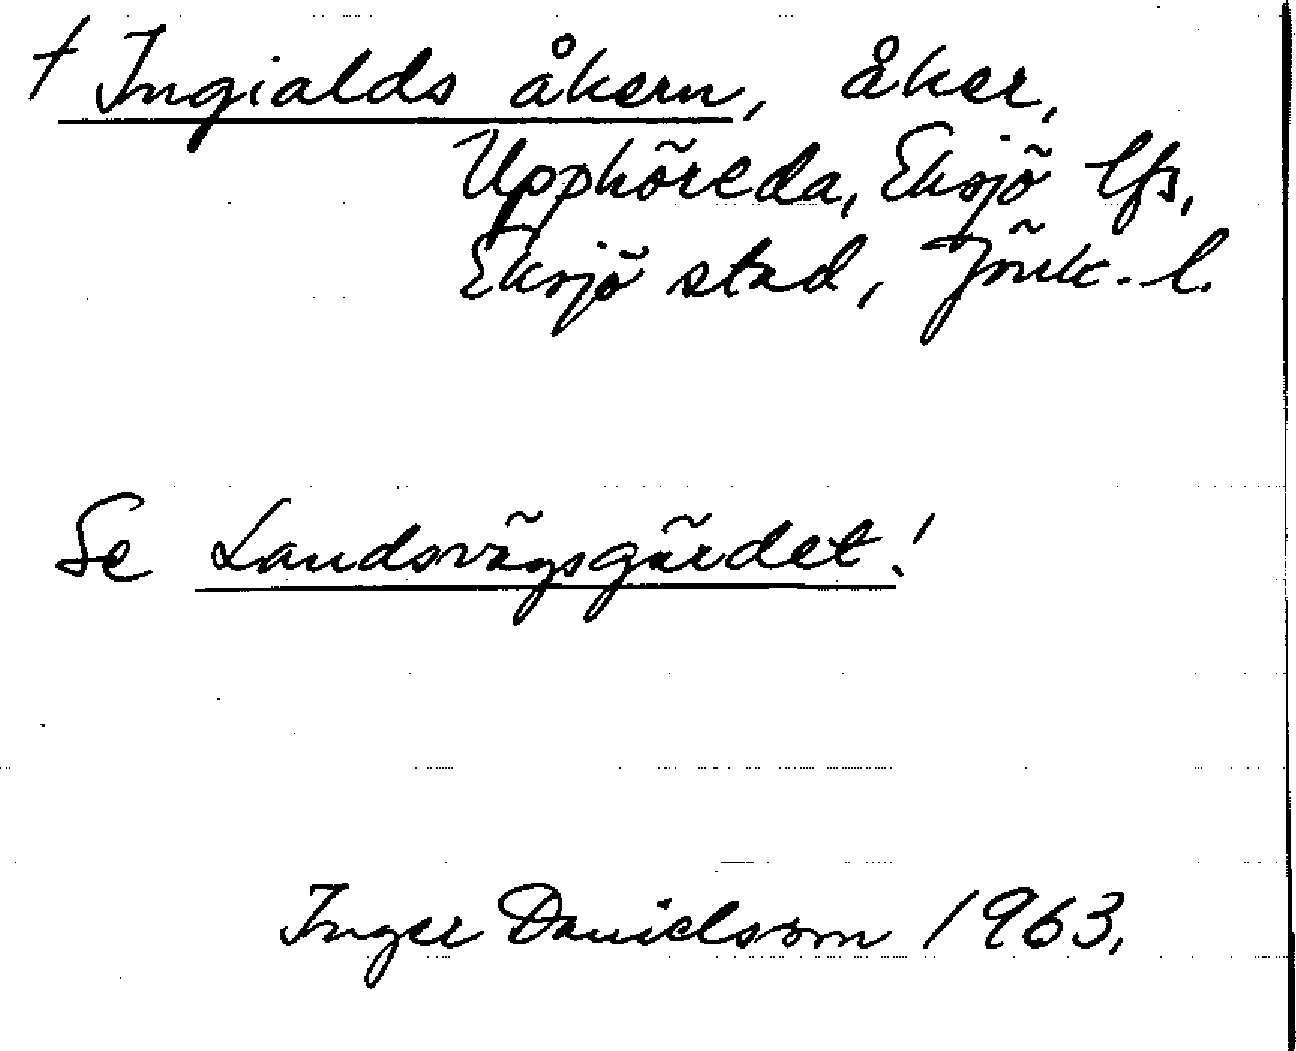 † Ingialds åkern, åker,
Upphöreda, Eksjö lfs,
Eksjö stad, Jönk. l.
Se Landsvägsgärdet!
Inger Danielsson 1963.